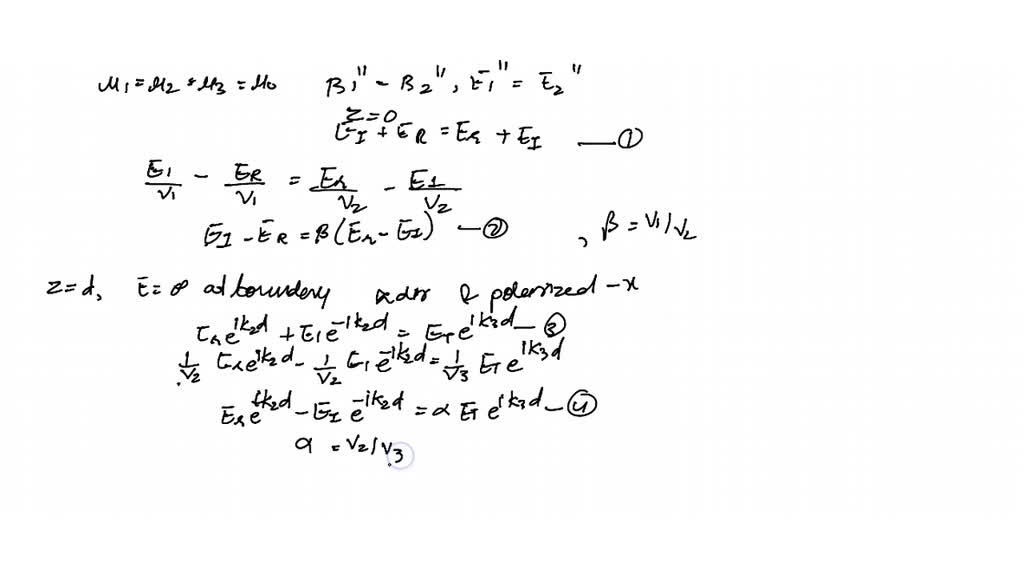 μ1 = μ2 = μ3 = μ0 B1" - B2", E1" = E2"
z=0
EI + ER = Er + EI —①
EI/v1 - ER/v1 = Er/v2 - EI/v2
EI - ER = β(Er - EI) —② , β = v1/v2
z=d, E= at boundary & polarized -x
Er e^ik2d + EI e^-ik2d = ET e^ik3d —③
1/v2 Er e^ik2d - 1/v2 EI e^-ik2d = 1/v3 ET e^ik3d
Er e^ik2d - EI e^-ik2d = α ET e^ik3d —④
α = v2/v3